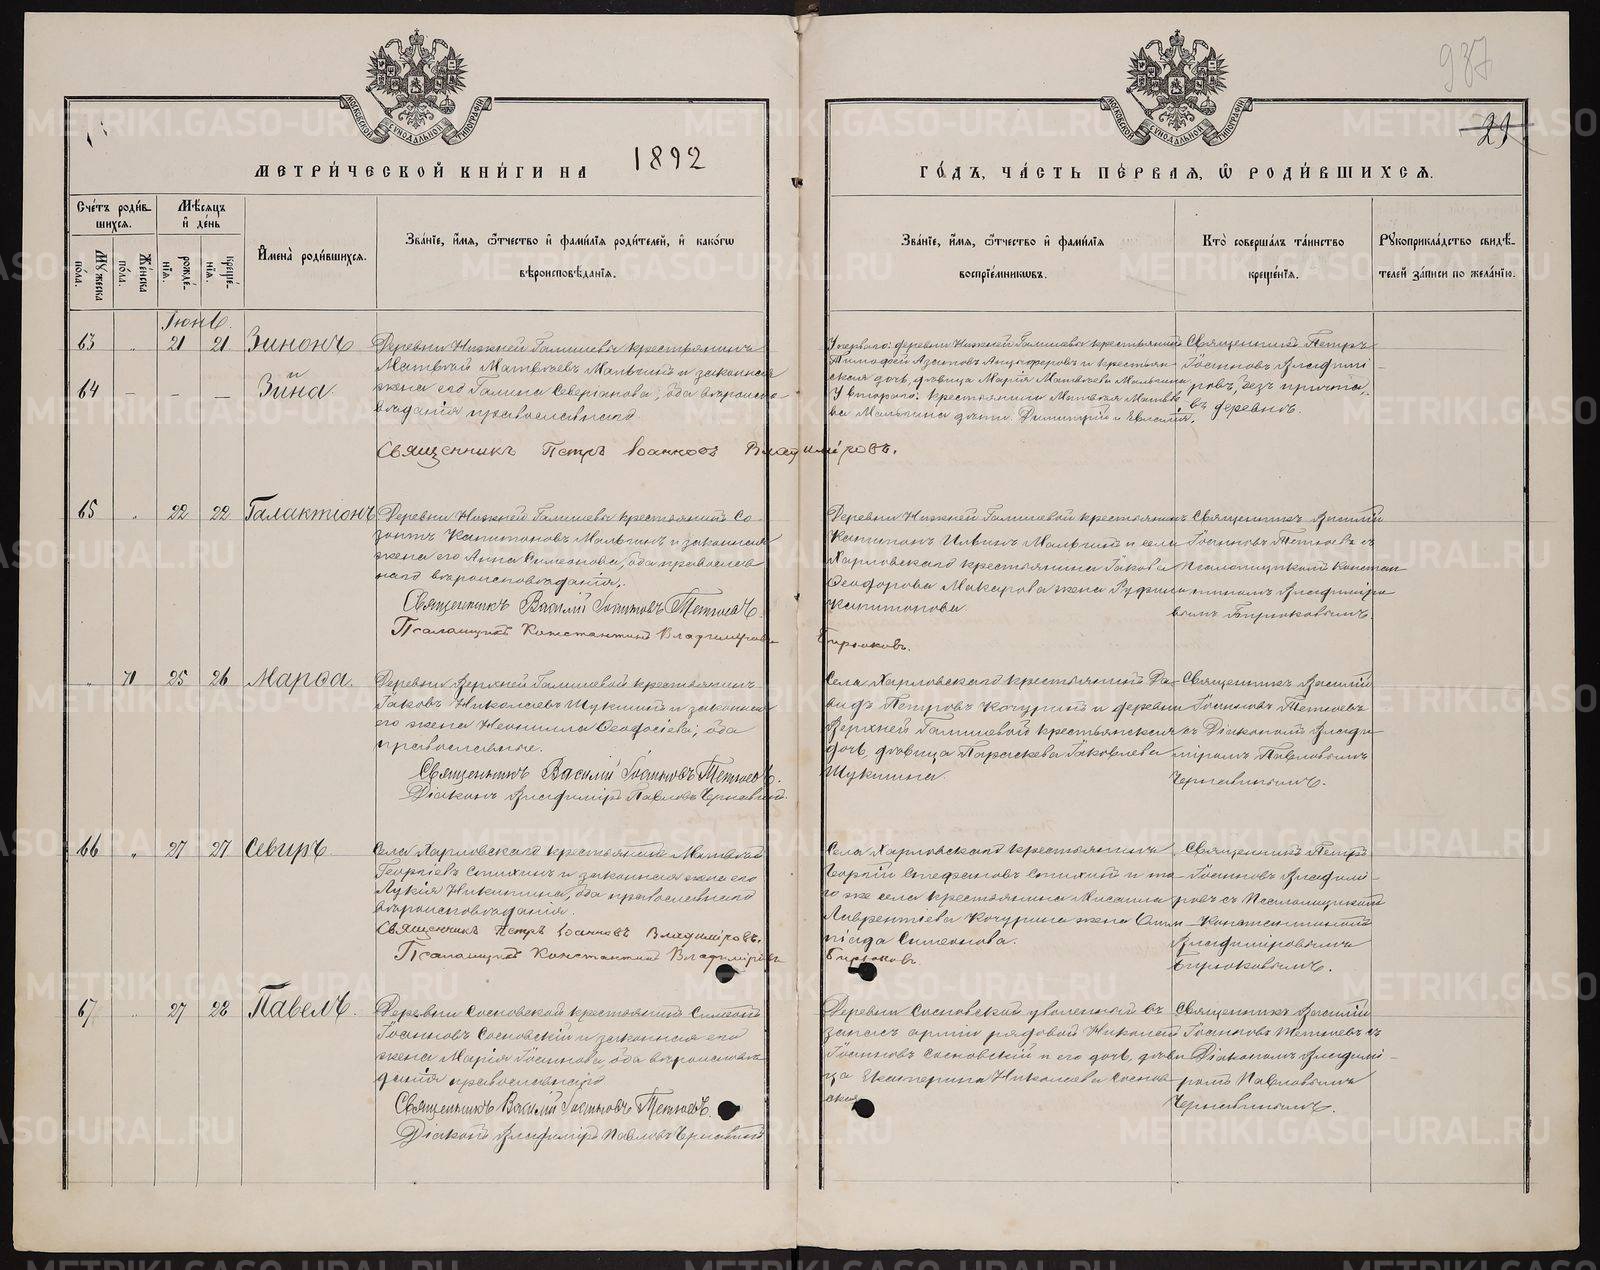 937
29
МОСКОВСКОЙ СѴНОДАЛЬНОЙ ТИПОГРАФІИ
МОСКОВСКОЙ СѴНОДАЛЬНОЙ ТИПОГРАФІИ
МЕТРИ́ЧЕСКОЙ КНИ́ГИ НА 1892
ГО́ДЪ, ЧА́СТЬ ПЕ́РВАЯ, Ѡ РОДИ́ВШИХСѦ.
Сче́тъ роди́вшихся.
Мѣ́сяцъ и де́нь
Му́жеска по́ла.
Же́нска по́ла.
рожде́нїя.
креще́нїя.
И́мена̀ роди́вшихся.
Зва́нїе, и́мя, ѻ́тчество и фами́лїя роди́телей, и како́гѡ
вѣроисповѣ́данїя.
Зва́нїе, и́мя, ѻ́тчество и фами́лїя
воспрїе́мниковъ.
Кто̀ соверша́лъ та́инство
креще́нїя.
Рꙋкоприкла́дство свидѣ́телей за́писи по жела́нїю.
Іюнь.
63 " 21 21 Зинонъ
Деревни Нижней Галишевъ крестьянинъ
Матвѣй Матвѣевъ Малыгинъ и законная
64 — — — Зина
жена его Галина Северіанова, оба вѣроиспо
вѣданія православнаго
Священникъ Петръ Іоанновъ Владиміровъ.
У перваго: деревни Нижней Галишевой крестьянинъ
скаго дочь, дѣвица Марія Матвѣева Малыгина
У втораго: крестьянина Матвѣя Матвѣе
ва Малыгина дѣти Димитрій и Евсилія.
Священникъ Петръ
Іоанновъ Владимі-
ровъ, безъ причта,
въ деревнѣ.
65 " 22 22 Галактіонъ
Деревни Нижней Галишевы крестьянинъ Со
зонтъ Капитоновъ Малыгинъ и законная
жена его Анна Симеонова, оба православ
наго вѣроисповѣданія.
Священникъ Василій Іоанновъ
Псаломщикъ Константинъ Владиміровъ
Бирюковъ.
Деревни Нижней Галишевой крестьянинъ
Капитонъ Ильинъ Малыгинъ и села
Харловскаго крестьянина Іакова
Ѳеодорова Макарова жена Руфина
Капитонова
Священникъ Василій
Іоанновъ съ
псаломщикомъ Констан
тиномъ Владиміро
вымъ Бирюковымъ.
" 71 25 26 Марѳа.
Деревни Верхней Галишевой крестьянинъ
Іаковъ Николаевъ Щукинъ и законная
его жена Неонила Ѳеодосіева; оба
православные.
Священникъ Василій Іоанновъ
Діаконъ Владиміръ Павловъ
Села Харловскаго крестьянинъ Да-
видъ Петровъ Кочуринъ и деревни
Верхней Галишевой крестьянская
дочь, дѣвица Параскева Іаковлева
Щукина
Священникъ Василій
Іоанновъ
съ Діакономъ Влади
міромъ Павловымъ
66 " 27 27 Севиръ
Села Харловскаго крестьянинъ Матвѣй
Георгіевъ Спихинъ и законная жена его
Лукія Никитина, оба православнаго
вѣроисповѣданія.
Священникъ Петръ Іоанновъ Владиміровъ.
Псаломщикъ Константинъ Владиміровъ
Бирюковъ.
Села Харловскаго крестьянинъ
Георгій Стефановъ Спихинъ и то
го же села крестьянина Мисаила
Лаврентіева Кочурина жена Олим
піада Симеонова.
Священникъ Петръ
Іоанновъ Владимі-
ровъ съ Псаломщикомъ
Константиномъ
Владиміровымъ
Бирюковымъ.
67 " 27 28 Павелъ.
Деревни Сосновской крестьянинъ Симеонъ
Іоанновъ Сосновскій и законная его
жена Марія Іоаннова, оба вѣроисповѣ
данія православнаго
Священникъ Василій Іоанновъ
Діаконъ Владиміръ Павловъ
Деревни Сосновской уволенный въ
запасъ арміи рядовой Николай
Іоанновъ Сосновскій и его дочь, дѣви
ца Екатерина Николаева Соснов
ская
Священникъ Василій
Іоанновъ съ
Діакономъ Владимі-
ромъ Павловымъ
METRIKI.GASO-URAL.RU